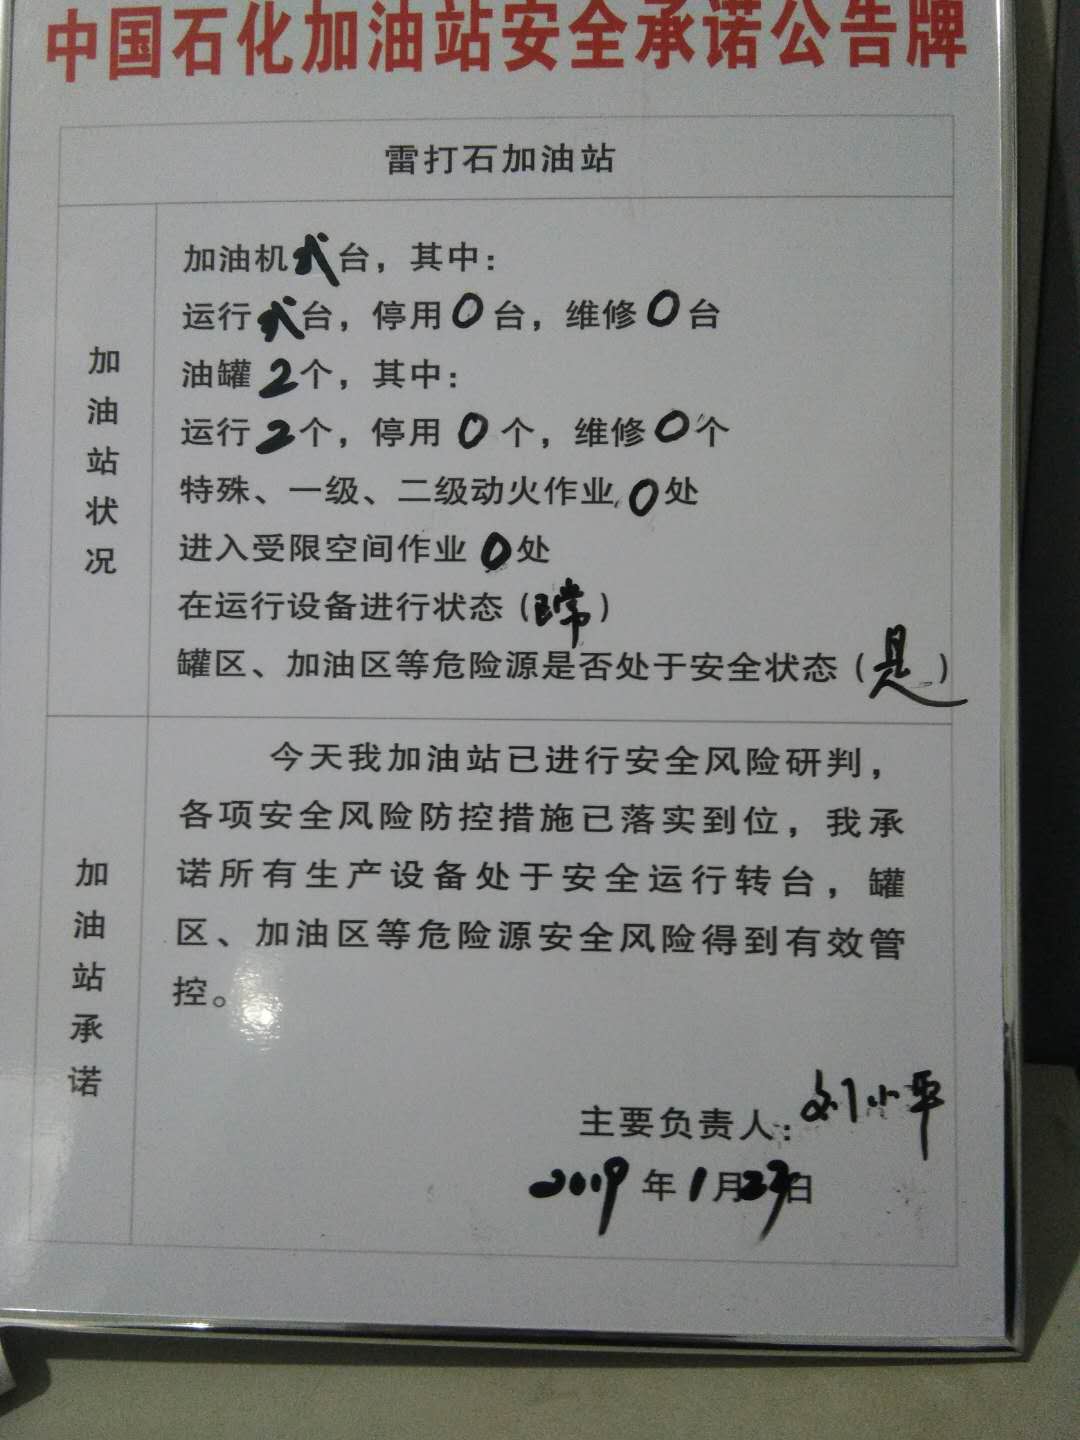 中国石化加油站安全承诺公告牌
雷打石加油站
加油站状况
加油机 台，其中：
运行 台，停用0台，维修0台
油罐2个，其中：
运行2个，停用0个，维修0个
特殊、一级、二级动火作业0处
进入受限空间作业0处
在运行设备进行状态（正常）
罐区、加油区等危险源是否处于安全状态（是）
加油站承诺
今天我加油站已进行安全风险研判，
各项安全风险防控措施已落实到位，我承
诺所有生产设备处于安全运行转台，罐
区、加油区等危险源安全风险得到有效管
控。
主要负责人：刘小平
2019年1月 日